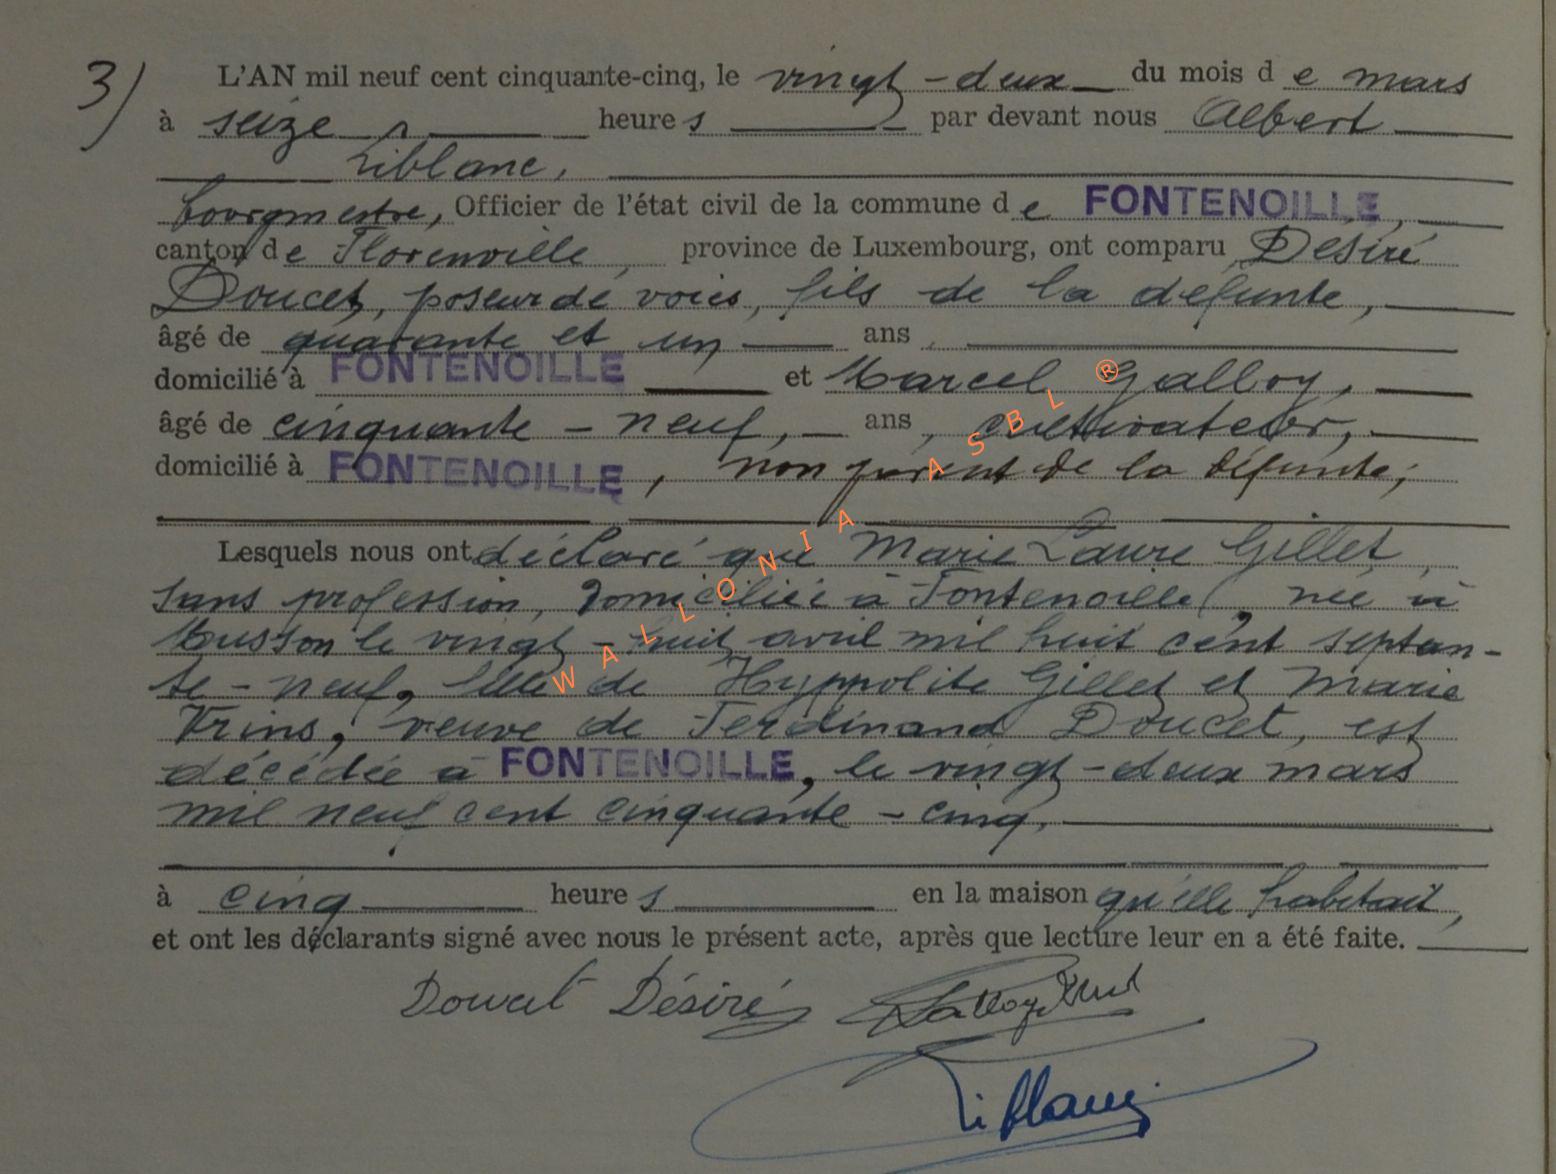 3) L'AN mil neuf cent cinquante-cinq, le vingt-deux du mois de mars
à seize heures par devant nous Albert
Liblanc,
bourgmestre, Officier de l'état civil de la commune de FONTENOILLE,
canton de Florenville, province de Luxembourg, ont comparu Désiré
Doucet, poseur de voies, fils de la défunte,
âgé de quarante et un ans,
domicilié à FONTENOILLE et Marcel Galloy,
âgé de cinquante-neuf, ans, cultivateur,
domicilié à FONTENOILLE, non parent de la défunte;
Lesquels nous ont déclaré que Marie Laure Gillet,
sans profession, domiciliée à Fontenoille, née à
Musson le vingt-huit avril mil huit cent septan-
te-neuf, fille de Hyppolite Gillet et Marie
Vrins, veuve de Ferdinand Doucet, est
décédée à FONTENOILLE, le vingt-deux mars
mil neuf cent cinquante-cinq,
à cinq heures en la maison qu'elle habitait,
et ont les déclarants signé avec nous le présent acte, après que lecture leur en a été faite.
Doucet Désiré Galloy
Liblanc
WALLONIA ASBL ®